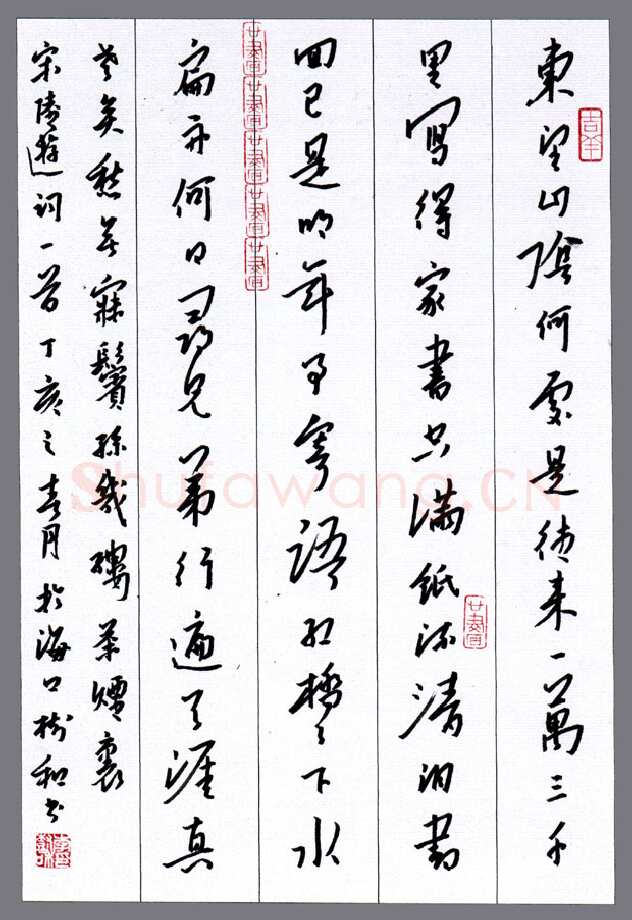 東望山陰何處是往來一萬三千
里寫得家書空滿紙流清泪書
回已是明年事寄語紅橋々下水
扁舟何日尋兄弟行遍天涯真
老矣愁無寐鬢絲幾縷茶煙裏
宋陸游詞一首丁亥之春月於海口樹和書
吉羊
Shufawang.CN